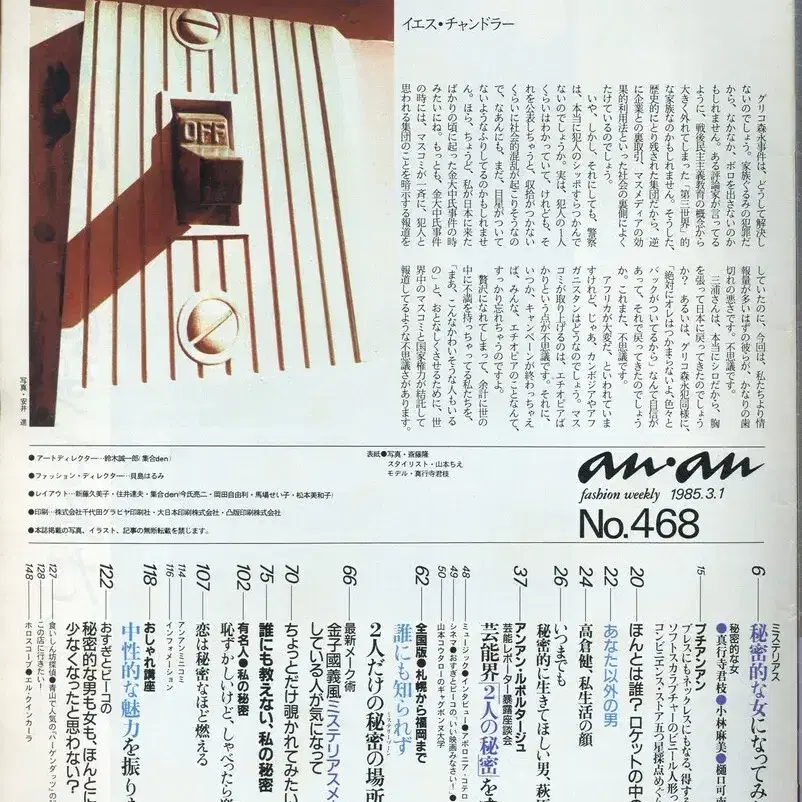 OFF
イエス・チャンドラー
グリコ森永事件は、どうして解決し
ないのでしょう。家族ぐるみの犯罪だ
から、なかなか、ボロを出さないのか
もしれません。ある評論家が言ってる
ように、戦後民主主義教育の概念から
大きく外れてしまった「第三世界」的
な家族なのかもしれません。そうした、
歴史的にとり残された集団だから、逆
に企業との裏取引、マスメディアの効
果的利用法といった社会の裏側によく
たけているのでしょう。
いや、しかし、それにしても、警察
は、本当に犯人のシッポすらつかんで
ないのでしょうか。実は、犯人の1人
くらいはわかっていて、けれども、そ
れを公表しちゃうと、収拾がつかない
くらいに社会的混乱が起こりそうなの
で、なあんにも、まだ、目星がついて
ないようなふりしてるのかもしれませ
ん。ほら、ちょうど、私が日本に来た
ばかりの頃に起った金大中氏事件の時
みたいにね。もっとも、金大中氏事件
の時には、マスコミが一斉に、犯人と
思われる集団のことを暗示する報道を
していたのに、今回は、私たちより情
報量が多いはずの彼らが、かなりの歯
切れの悪さです。不思議です。
三浦さんは、本当にシロだから、胸
を張って日本に戻ってきたのでしょう
か?あるいは、グリコ森永犯同様に、
「絶対にオレはつかまらないよ、色々と
バックがついてるから」なんて自信が
あって、それで戻ってきたのでしょう
か。これまた、不思議です。
アフリカが大変だ、といわれていま
すけれど、じゃあ、カンボジアやアフ
ガニスタンはどうなのでしょう。マス
コミが取り上げるのは、エチオピアば
かりという点が不思議です。それに、
いつか、キャンペーンが終わっちゃえ
ば、みんな、エチオピアのことなんて、
すっかり忘れちゃうのですよ。
贅沢になれてしまって、余計に世の
中に不満を持っちゃってる私たちを、
「まあ、こんなかわいそうな人もいる
の」と、おとなしくさせるために、世
界中のマスコミと国家権力が結託して
報道してるような不思議さがあります。
写真・安井 進
●アートディレクター…鈴木誠一郎(集合den)
●ファッション・ディレクター…貝島はるみ
●レイアウト…新藤久美子・住井達夫・集合den(今氏亮二・岡田自由利・馬場せい子・松本美和子)
●印刷…株式会社千代田グラビヤ印刷社・大日本印刷株式会社・凸版印刷株式会社
●本誌掲載の写真、イラスト、記事の無断転載を禁じます。
表紙●写真・斎藤隆
スタイリスト・山本ちえ
モデル・真行寺君枝
an・an
fashion weekly 1985.3.1
No.468
6 ミステリアス
秘密的な女になってみ
秘密的な女
●真行寺君枝●小林麻美●樋口可南
15 プチアンアン
ブレスにもネックレスにもなる、得す
ソフトスカラプチャーのビニール人形っ
コンビニエンス・ストア五つ星採点めぐ
20 ほんとは誰?ロケットの中の
22 あなた以外の男
24 高倉健、私生活の顔
26 いつまでも
秘密的に生きてほしい男、萩原
37 アンアン・ルポルタージュ
芸能レポーター暴露座談会
芸能界「2人の秘密」を
48 ミュージック●インタビュー●アポロニア・コテロ
49 シネマ●おすぎとピーコの、「いい映画みなさい!」
50 山本コウタローのギャグボンヌ大学
62 全国版●札幌から福岡まで
誰にも知られず
2人だけの秘密の場所
66 最新メーク術
金子國義風ミステリアスメ
している人が気になって
70 ちょっとだけ覗かれてみたい
75 誰にも教えない、私の秘密
102 有名人●私の秘密
恥ずかしいけど、しゃべったら
107 恋は秘密なほど燃える
114 アンアンミニコミ
116 インフォメーション
118 おしゃれ講座
中性的な魅力を振りま
122 おすぎとピーコの
秘密的な男も女も、ほんとに
少なくなったと思わない?
127 食いしん坊探偵●青山で人気の「バーゲンダッツ」の
128 この店に行きたい!
148 ホロスコープ●エル・クインカーラ